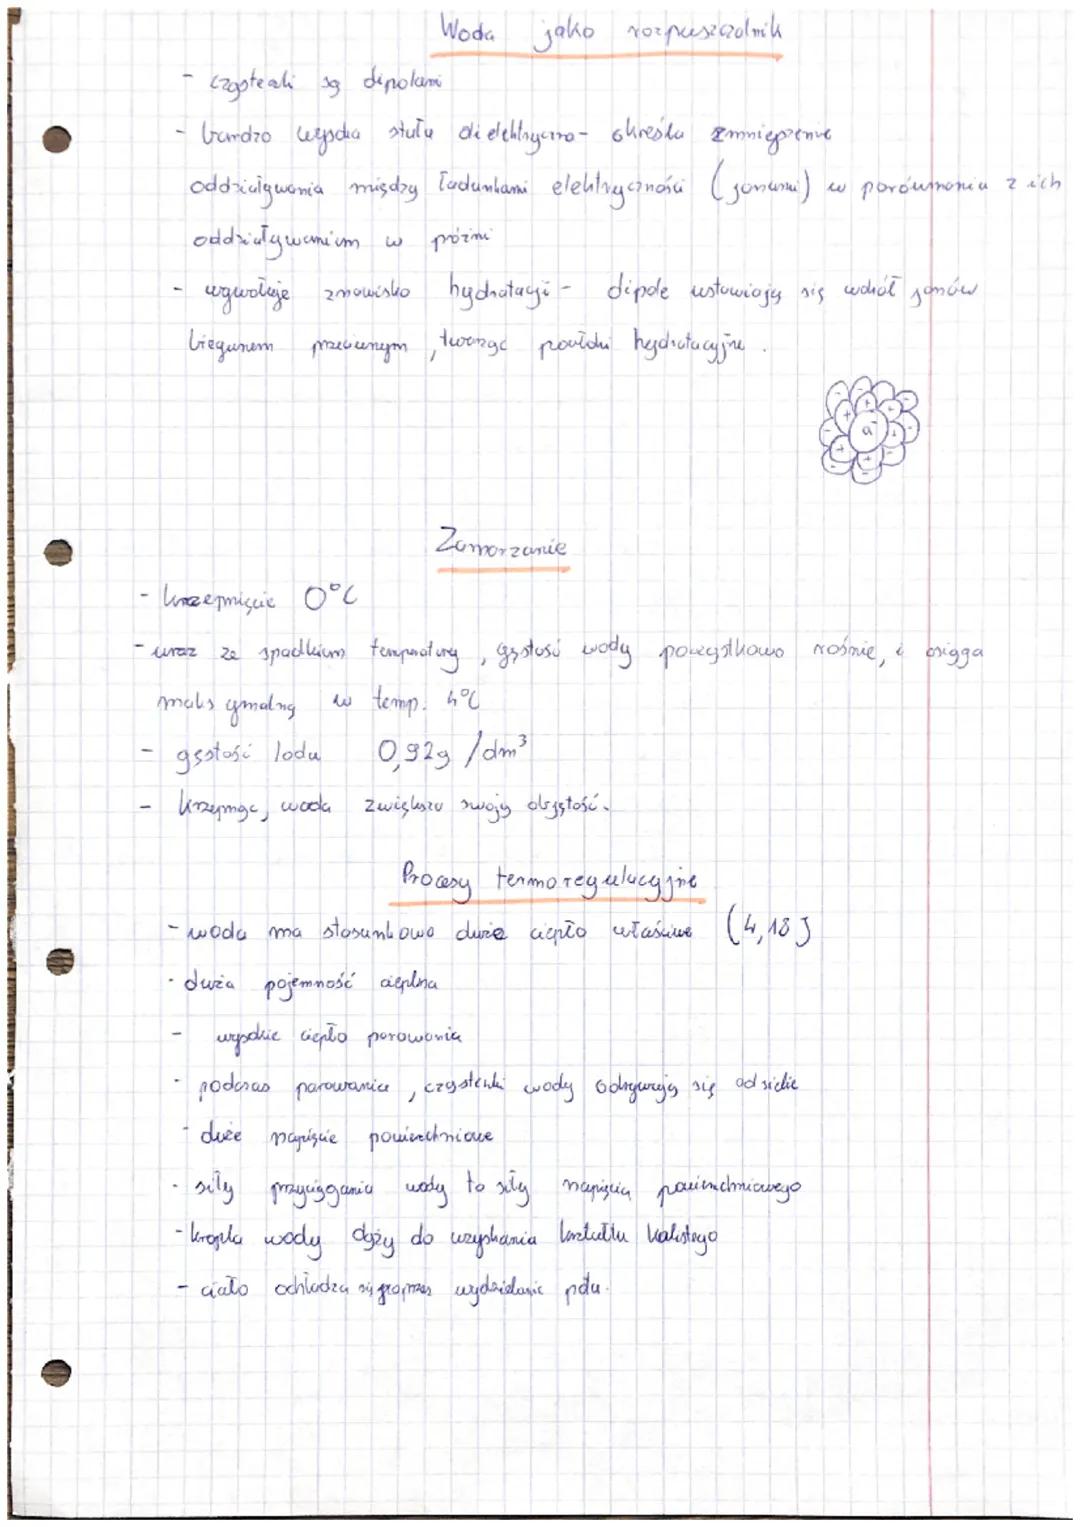 Woda jako rozpuszczalnik
- cząsteczki są dipolami
- bardzo wysoka stała dielektryczna- określa zmniejszenie
oddziaływania między ładunkami elektryczności (jonami) w porównaniu z ich
oddziaływaniem w próżni
- wywołuje zjawisko hydratacji - dipole ustawiają się wokół jonów
biegunem przeciwnym, tworząc powłoki hydratacyjne.
Zamarzanie
- krzepnięcie 0°C
- wraz ze spadkiem temperatury, gęstość wody początkowo rośnie, i osiąga
maksymalną w temp. 4°C
- gęstość lodu 0,92g/dm³
- Krzepnąc, woda zwiększa swoją objętość.
Procesy termoregulacyjne
- woda ma stosunkowo duże ciepło właściwe (4,18J
- duża pojemność cieplna
- wysokie ciepło parowania
- podczas parowania, cząsteczki wody odrywają się od siebie
- duże napięcie powierzchniowe
- siły przyciągania wody to siły napięcia powierzchniowego
- kropla wody dąży do uzyskania kształtu kulistego
- ciało ochładza się poprzez wydzielanie potu.